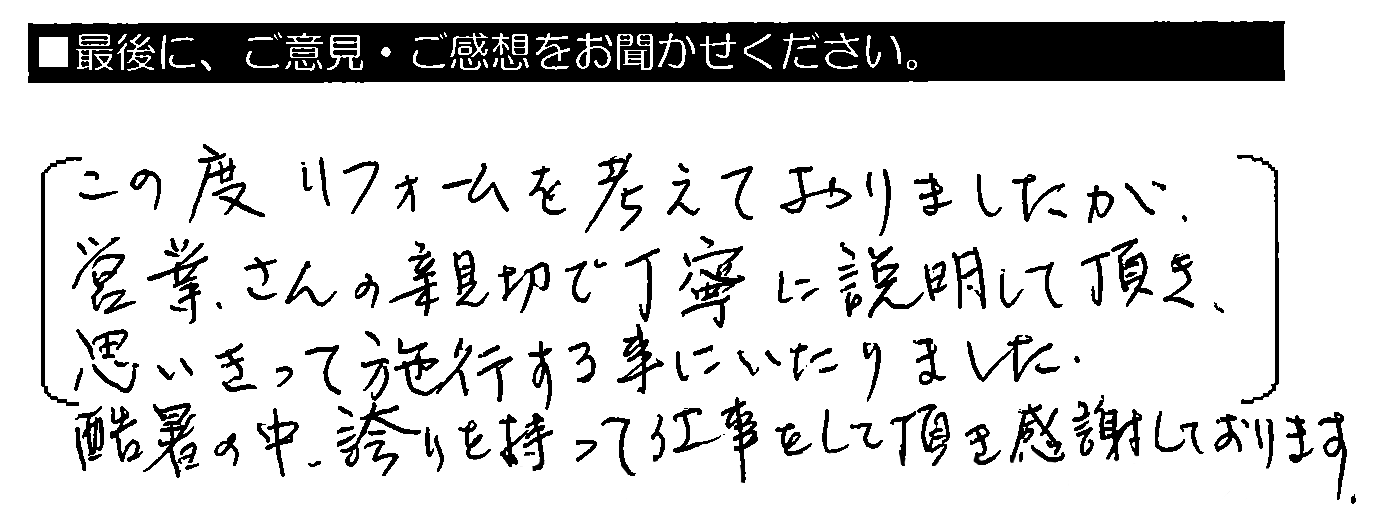 ■最後に、ご意見・ご感想をお聞かせください。
この度リフォームを考えておりましたが、
営業、さんの親切で丁寧に説明して頂き、
思いきって施行する事にいたりました.
酷暑の中、誇りを持って仕事をして頂き感謝しております.